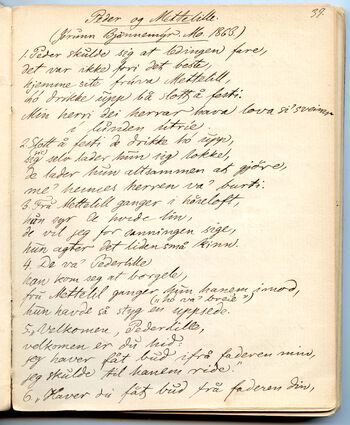 39.
Peder og Mettelille.
(Jrunn Bjønnemyr. Mo. 1863.)
1. Peder skulde sig at ledingen fare,
det var ikke fori det beste,
hjemme site frúva Mettelill,
hó drikke upp bå slott å festi.
Min herri dei herrar hava lova si' sveinen
i lúnden útrie.
2. Slott å festi de drikke hó upp,
sig selv lader hún sig lokke,
de lader hun altsammen at gjöre,
me' hennes herren va' burti.
3. Frú Mettelil ganger i höseloft,
hún syr de hvide lin,
de vil jeg for sanningen sige,
hún agter det liden små kinn.
4. De va' Pederlille
han kom seg at borgele,
frú Mettelil ganger hun hanem imod,
("hó va' breie")
hun havde så styg en uppsede.
5. "Velkomen, Pederlille,
velkomen er dú hid:
jeg haver fåt bud ifrå faderen min,
jeg skúlde til hanem ride."
6. "Haver du fåt búd frå faderen din,